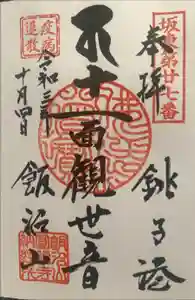 坂東第廿七番
奉拝
銚子港
十一面観世音
疫病
退散
令和三年
十月四日
飯沼山